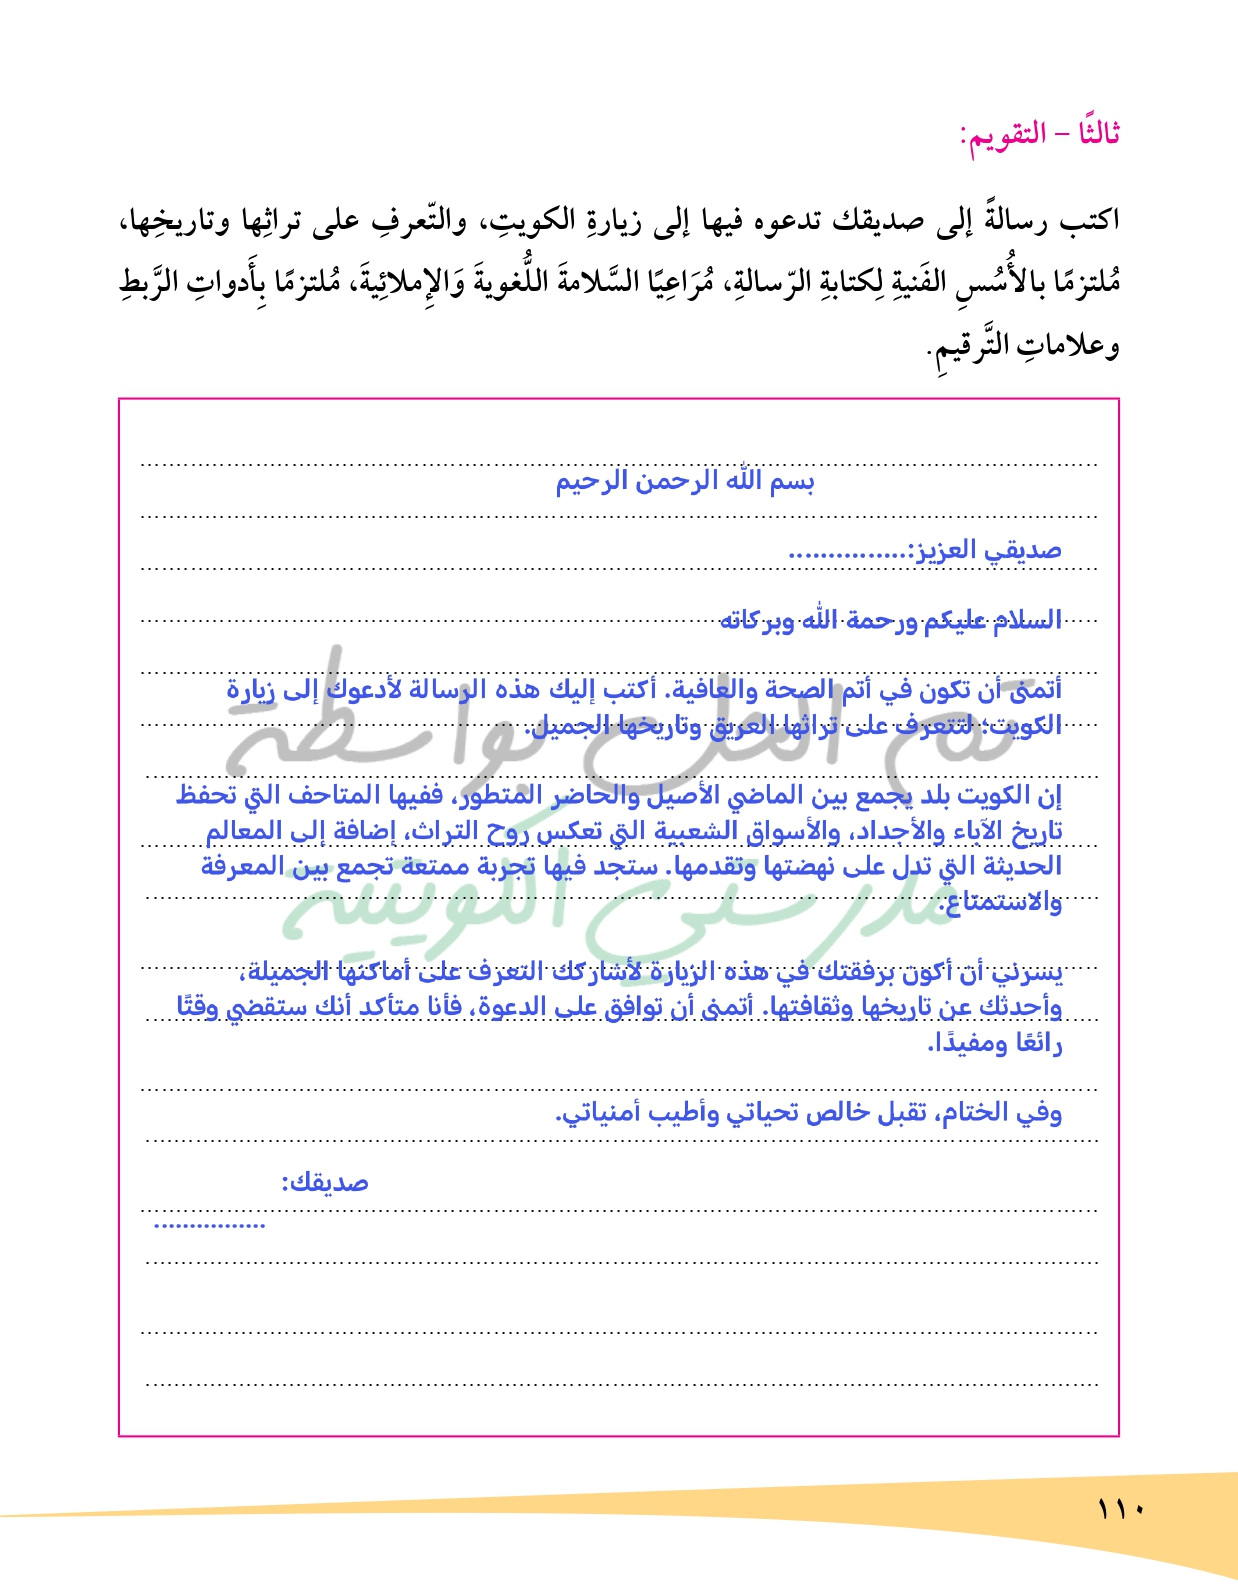 ثالثًا – التقويم:
اكتب رسالةً إلى صديقك تدعوه فيها إلى زيارةِ الكويتِ، والتّعرفِ على تراثِها وتاريخِها،
مُلتزمًا بالأُسُسِ الفَنيةِ لِكتابةِ الرّسالةِ، مُرَاعِيًا السَّلامةَ اللُّغويةَ وَالإِملائِيةَ، مُلتزمًا بِأَدواتِ الرَّبطِ
وعلاماتِ التَّرقيمِ.
بسم الله الرحمن الرحيم
صديقي العزيز:...............
السلام عليكم ورحمة الله وبركاته
أتمنى أن تكون في أتم الصحة والعافية. أكتب إليك هذه الرسالة لأدعوك إلى زيارة
الكويت؛ لتتعرف على تراثها العريق وتاريخها الجميل.
تم الحل بواسطة
إن الكويت بلد يجمع بين الماضي الأصيل والحاضر المتطور، ففيها المتاحف التي تحفظ
تاريخ الآباء والأجداد، والأسواق الشعبية التي تعكس روح التراث، إضافة إلى المعالم
الحديثة التي تدل على نهضتها وتقدمها. ستجد فيها تجربة ممتعة تجمع بين المعرفة
والاستمتاع.
مدرستي الكويتية
يسرني أن أكون برفقتك في هذه الزيارة لأشاركك التعرف على أماكنها الجميلة،
وأحدثك عن تاريخها وثقافتها. أتمنى أن توافق على الدعوة، فأنا متأكد أنك ستقضي وقتًا
رائعًا ومفيدًا.
وفي الختام، تقبل خالص تحياتي وأطيب أمنياتي.
صديقك:
................
١١٠